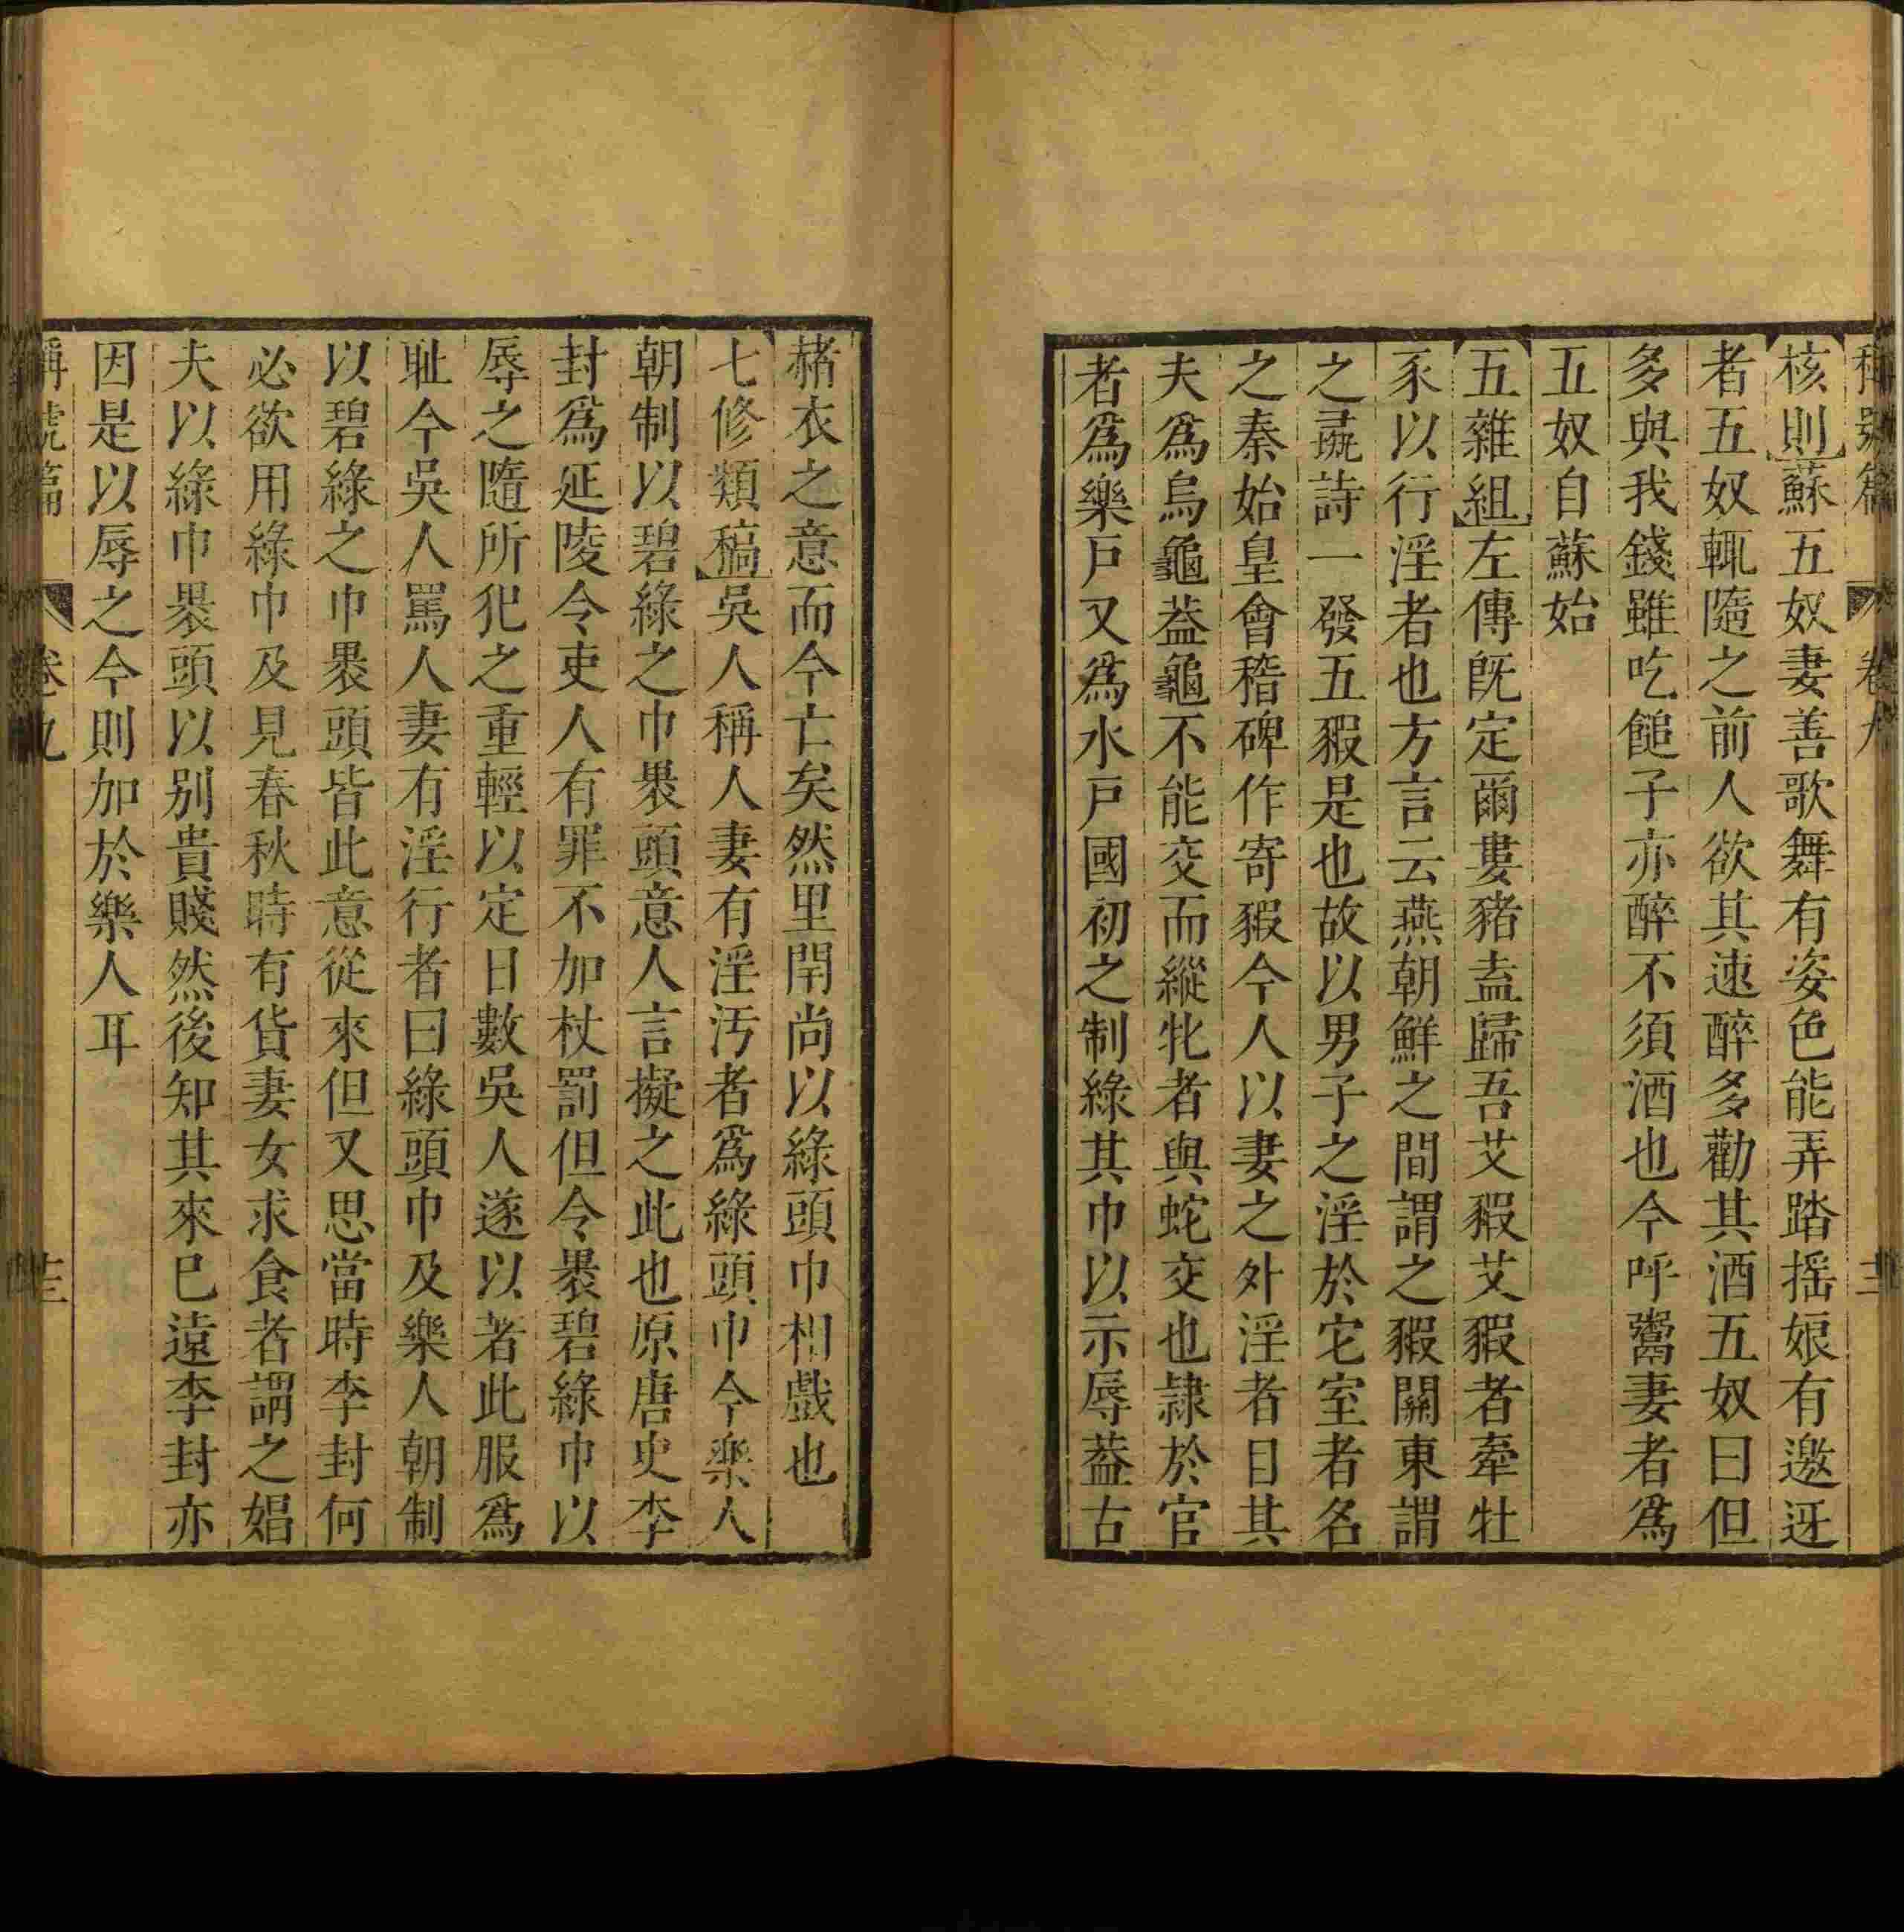 稱號篇 卷九
核則蘇五奴妻善歌舞有姿色能弄踏搖娘有邀迓
者五奴輒隨之前人欲其速醉多勸其酒五奴曰但
多與我錢雖吃䭔子亦醉不須酒也今呼鬻妻者爲
五奴自蘇始
五雜組左傳旣定爾婁豬盍歸吾艾豭艾豭者牽牡
豕以行淫者也方言云燕朝鮮之間謂之豭關東謂
之彘詩一發五豭是也故以男子之淫於它室者名
之秦始皇會稽碑作寄豭今人以妻之外淫者目其
夫爲烏龜葢龜不能交而縱牝者與蛇交也隷於官
者爲樂戸又爲水戸國初之制綠其巾以示辱葢古
赭衣之意而今亡矣然里閈尚以綠頭巾相戲也
七修類稿吳人稱人妻有淫汚者爲綠頭巾今樂人
朝制以碧綠之巾褁頭意人言擬之此也原唐史李
封爲延陵令吏人有罪不加杖罰但令褁碧綠巾以
辱之隨所犯之重輕以定日數吳人遂以著此服爲
耻今吳人罵人妻有淫行者曰綠頭巾及樂人朝制
以碧綠之巾褁頭皆此意從來但又思當時李封何
必欲用綠巾及見春秋時有貨妻女求食者謂之娼
夫以綠巾褁頭以别貴賤然後知其來已遠李封亦
因是以辱之今則加於樂人耳
稱號篇 卷九